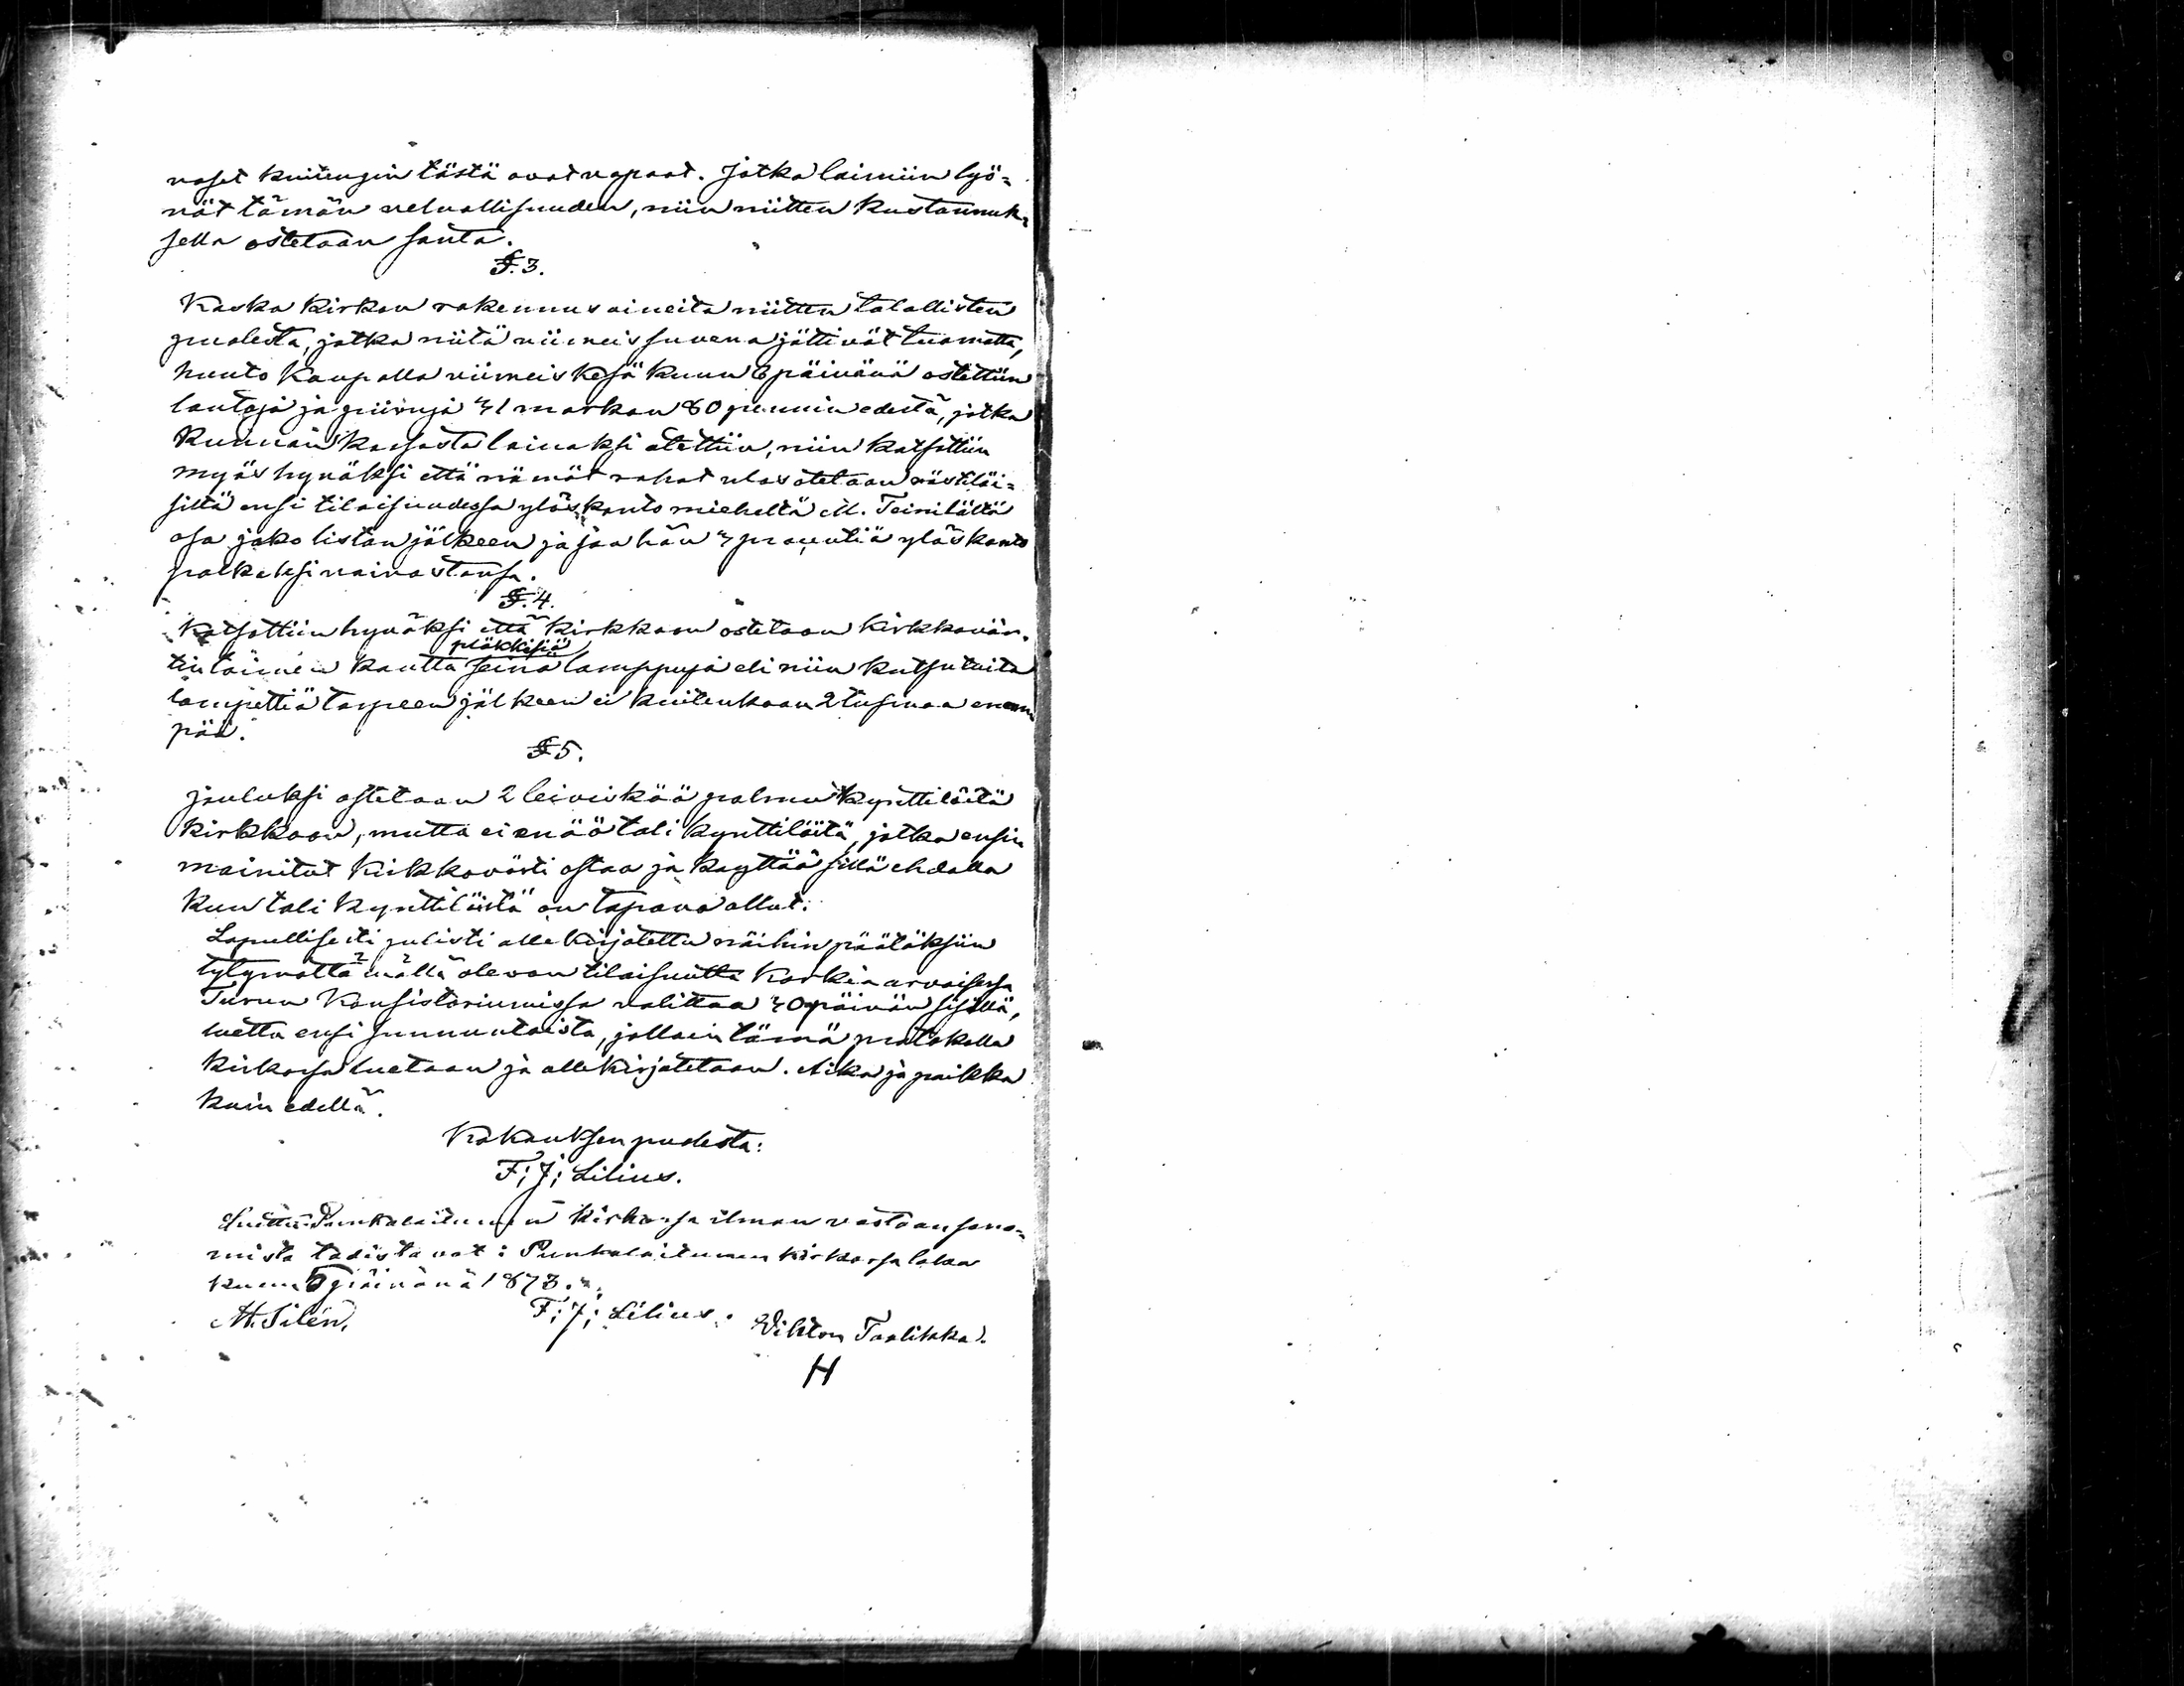 vaset kuitengin tästä ovat vapaat. Jotka laimiin lyö=
vät tämän velvollisuuden, niin niitten kustannuk=
sella ostetaan santa.
§. 3.
Koska kirkon rakennus aineita niitten talollisten
puolesta, jotka niitä viimeis suvena jättivät tuomatta,
huuto kaupalla viimeis kesä kuun 6 päivänä ostettiin
lautoja ja piiruja 41 markan 80 pennin edestä, jotka
kunnan kassasta lainaksi otettiin, niin katsottiin
myös hyväksi että nämät rahat ulos otetaan rästiläi=
siltä ensi tilaisuudessa ylös kanto mieheltä M. Teinilältä
osa jako listan jälkeen ja saa hän 4 prosentiä ylös kanto
palkaksi vaivastansa.
§. 4.
Katsottiin hyväksi että kirkkoon ostetaan kirkkovär=
pläkkisiä
tin toimen kautta seinä lamppuja eli niin kutsutuita
lampettiä tarpeen jälkeen ei kuitenkaan 2 tusinaa enem
pää.
§ 5.
Jouluksi ostetaan 2 leiviskää palmu kynttilöitä
kirkkoon, mutta ei enää tali kynttilöitä, jotka ensin
mainitut kirkkovärti ostaa ja käyttää sillä ehdolla
kun tali kynttilöistä on tapana ollut.
Lopullisesti julisti alle kirjotettu näihin päätöksiin
tytymättömällä olevan tilaisuutta korkia arvoisessa
Turun Konsistoriumissa valittaa 40 päivän sisällä,
luettu ensi sunnuntaista, jolloin tämä protokolla
kirkossa luetaan ja alle kirjotetaan. Aika ja paikka
kuin edellä.
Kokouksen puolesta:
F; J; Lilius.
Luettu Punkalaitumen kirkossa ilman vastaan sano=
mista todistavat: Punkalaitumen kirkossa loka
kuun 5 päivänä 1873.
M. Silén. F; J; Lilius. Vihtori Taalikka.
H